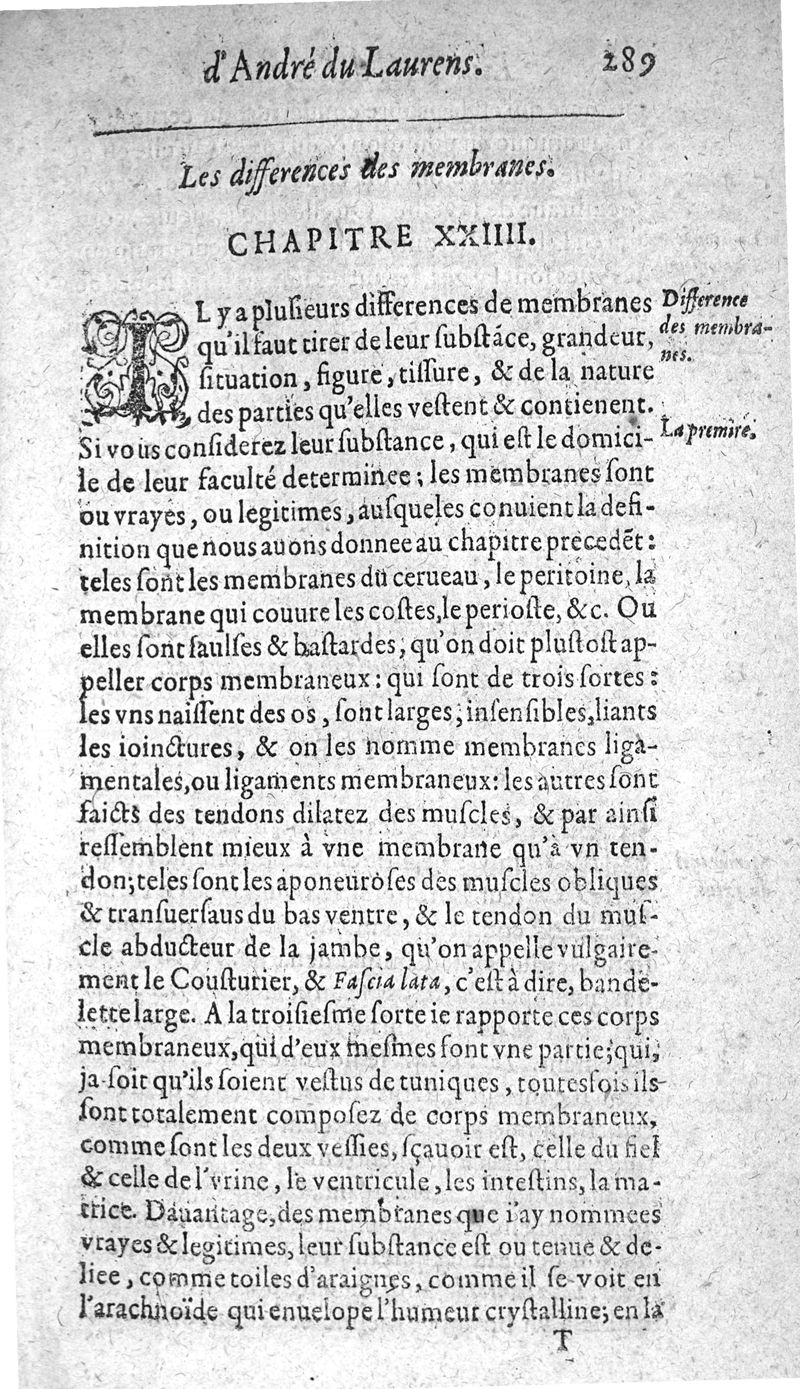 d'André du Laurens. 289
Les differences des membranes.
CHAPITRE XXIIII.
IL y a plusieurs differences de membranes
Difference
qu'il faut tirer de leur substáce, grandeur,
des membra-
nes.
situation, figure, tissure, & de la nature
des parties qu'elles vestent & contienent.
La premire.
Si vous considerez leur substance, qui est le domici-
le de leur faculté determinee; les membranes sont
ou vrayes, ou legitimes, ausqueles conuient la defi-
nition que nous auons donnee au chapitre precedẽt:
teles sont les membranes du cerueau, le peritoine, la
membrane qui couure les costes, le perioste, &c. Ou
elles sont faulses & bastardes, qu'on doit plustost ap-
peller corps membraneux: qui sont de trois sortes:
les vns naissent des os, sont larges, insensibles, liants
les ioinctures, & on les nomme membranes liga-
mentales, ou ligaments membraneux: les autres sont
faicts des tendons dilatez des muscles, & par ainsi
ressemblent mieux à vne membrane qu'à vn ten-
don; teles sont les aponeuroses des muscles obliques
& transuersaus du bas ventre, & le tendon du mus-
cle abducteur de la jambe, qu'on appelle vulgaire-
ment le Cousturier, & Fascia lata, c'est à dire, bande-
lette large. A la troisiesme sorte ie rapporte ces corps
membraneux, qui d'eux mesmes sont vne partie; qui,
ja-soit qu'ils soient vestus de tuniques, toutesfois ils
sont totalement composez de corps membraneux,
comme sont les deux vessies, sçauoir est, celle du fiel
& celle de l'vrine, le ventricule, les intestins, la ma-
trice. Dauantage, des membranes que i'ay nommees
vrayes & legitimes, leur substance est ou tenue & de-
liee, comme toiles d'araignes, comme il se voit en
l'arachnoïde qui enuelope l'humeur crystalline; en la
T